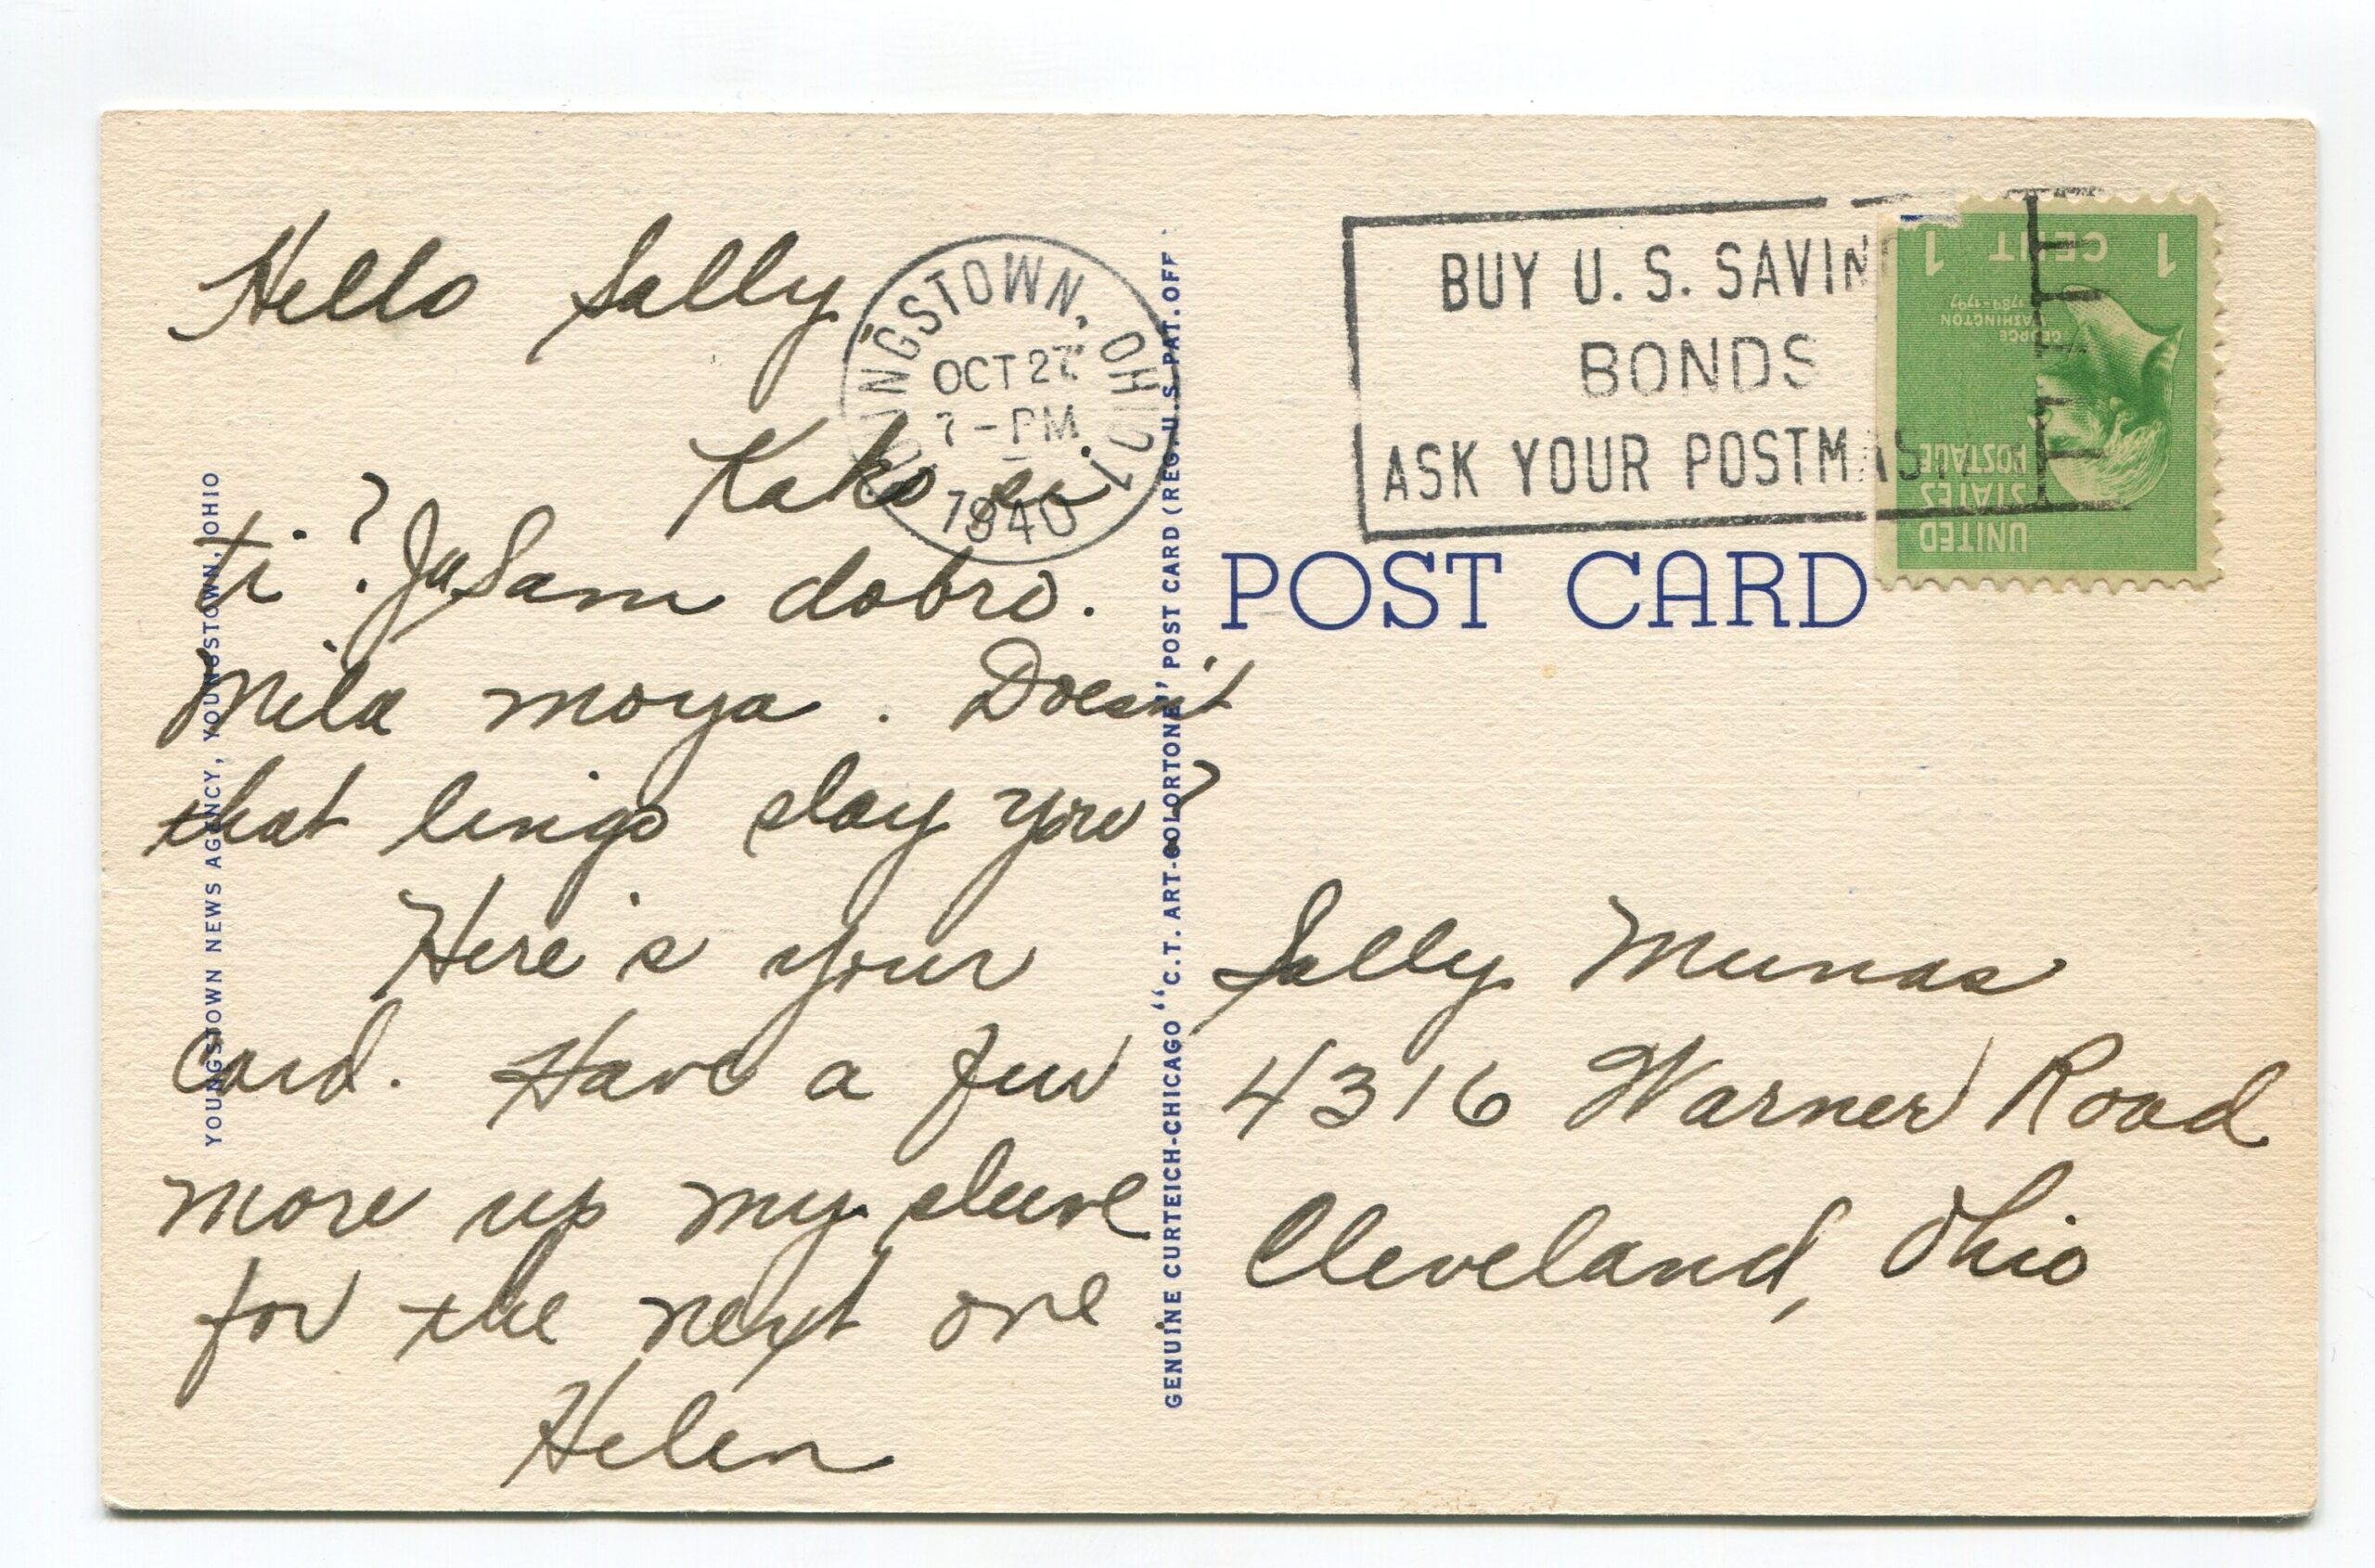 Hello Sally,
Kako si
ti? Ja Sam dobro.
Mila moya. Doesn't
that lingo slay you?
Here's your
card. Have a few
more up my sleeve
for the next one
Helen
YOUNGSTOWN, OHIO
OCT 27
7-PM
1940
BUY U.S. SAVIN
BONDS
ASK YOUR POSTMAST
1 CENT 1
GEORGE
WASHINGTON
1789-1797
UNITED
STATES
POSTAGE
POST CARD
Sally Munas
4316 Warner Road
Cleveland, Ohio
YOUNGSTOWN NEWS AGENCY, YOUNGSTOWN, OHIO
GENUINE CURTEICH-CHICAGO "C.T. ART-COLORTONE" POST CARD (REG. U.S. PAT. OFF.